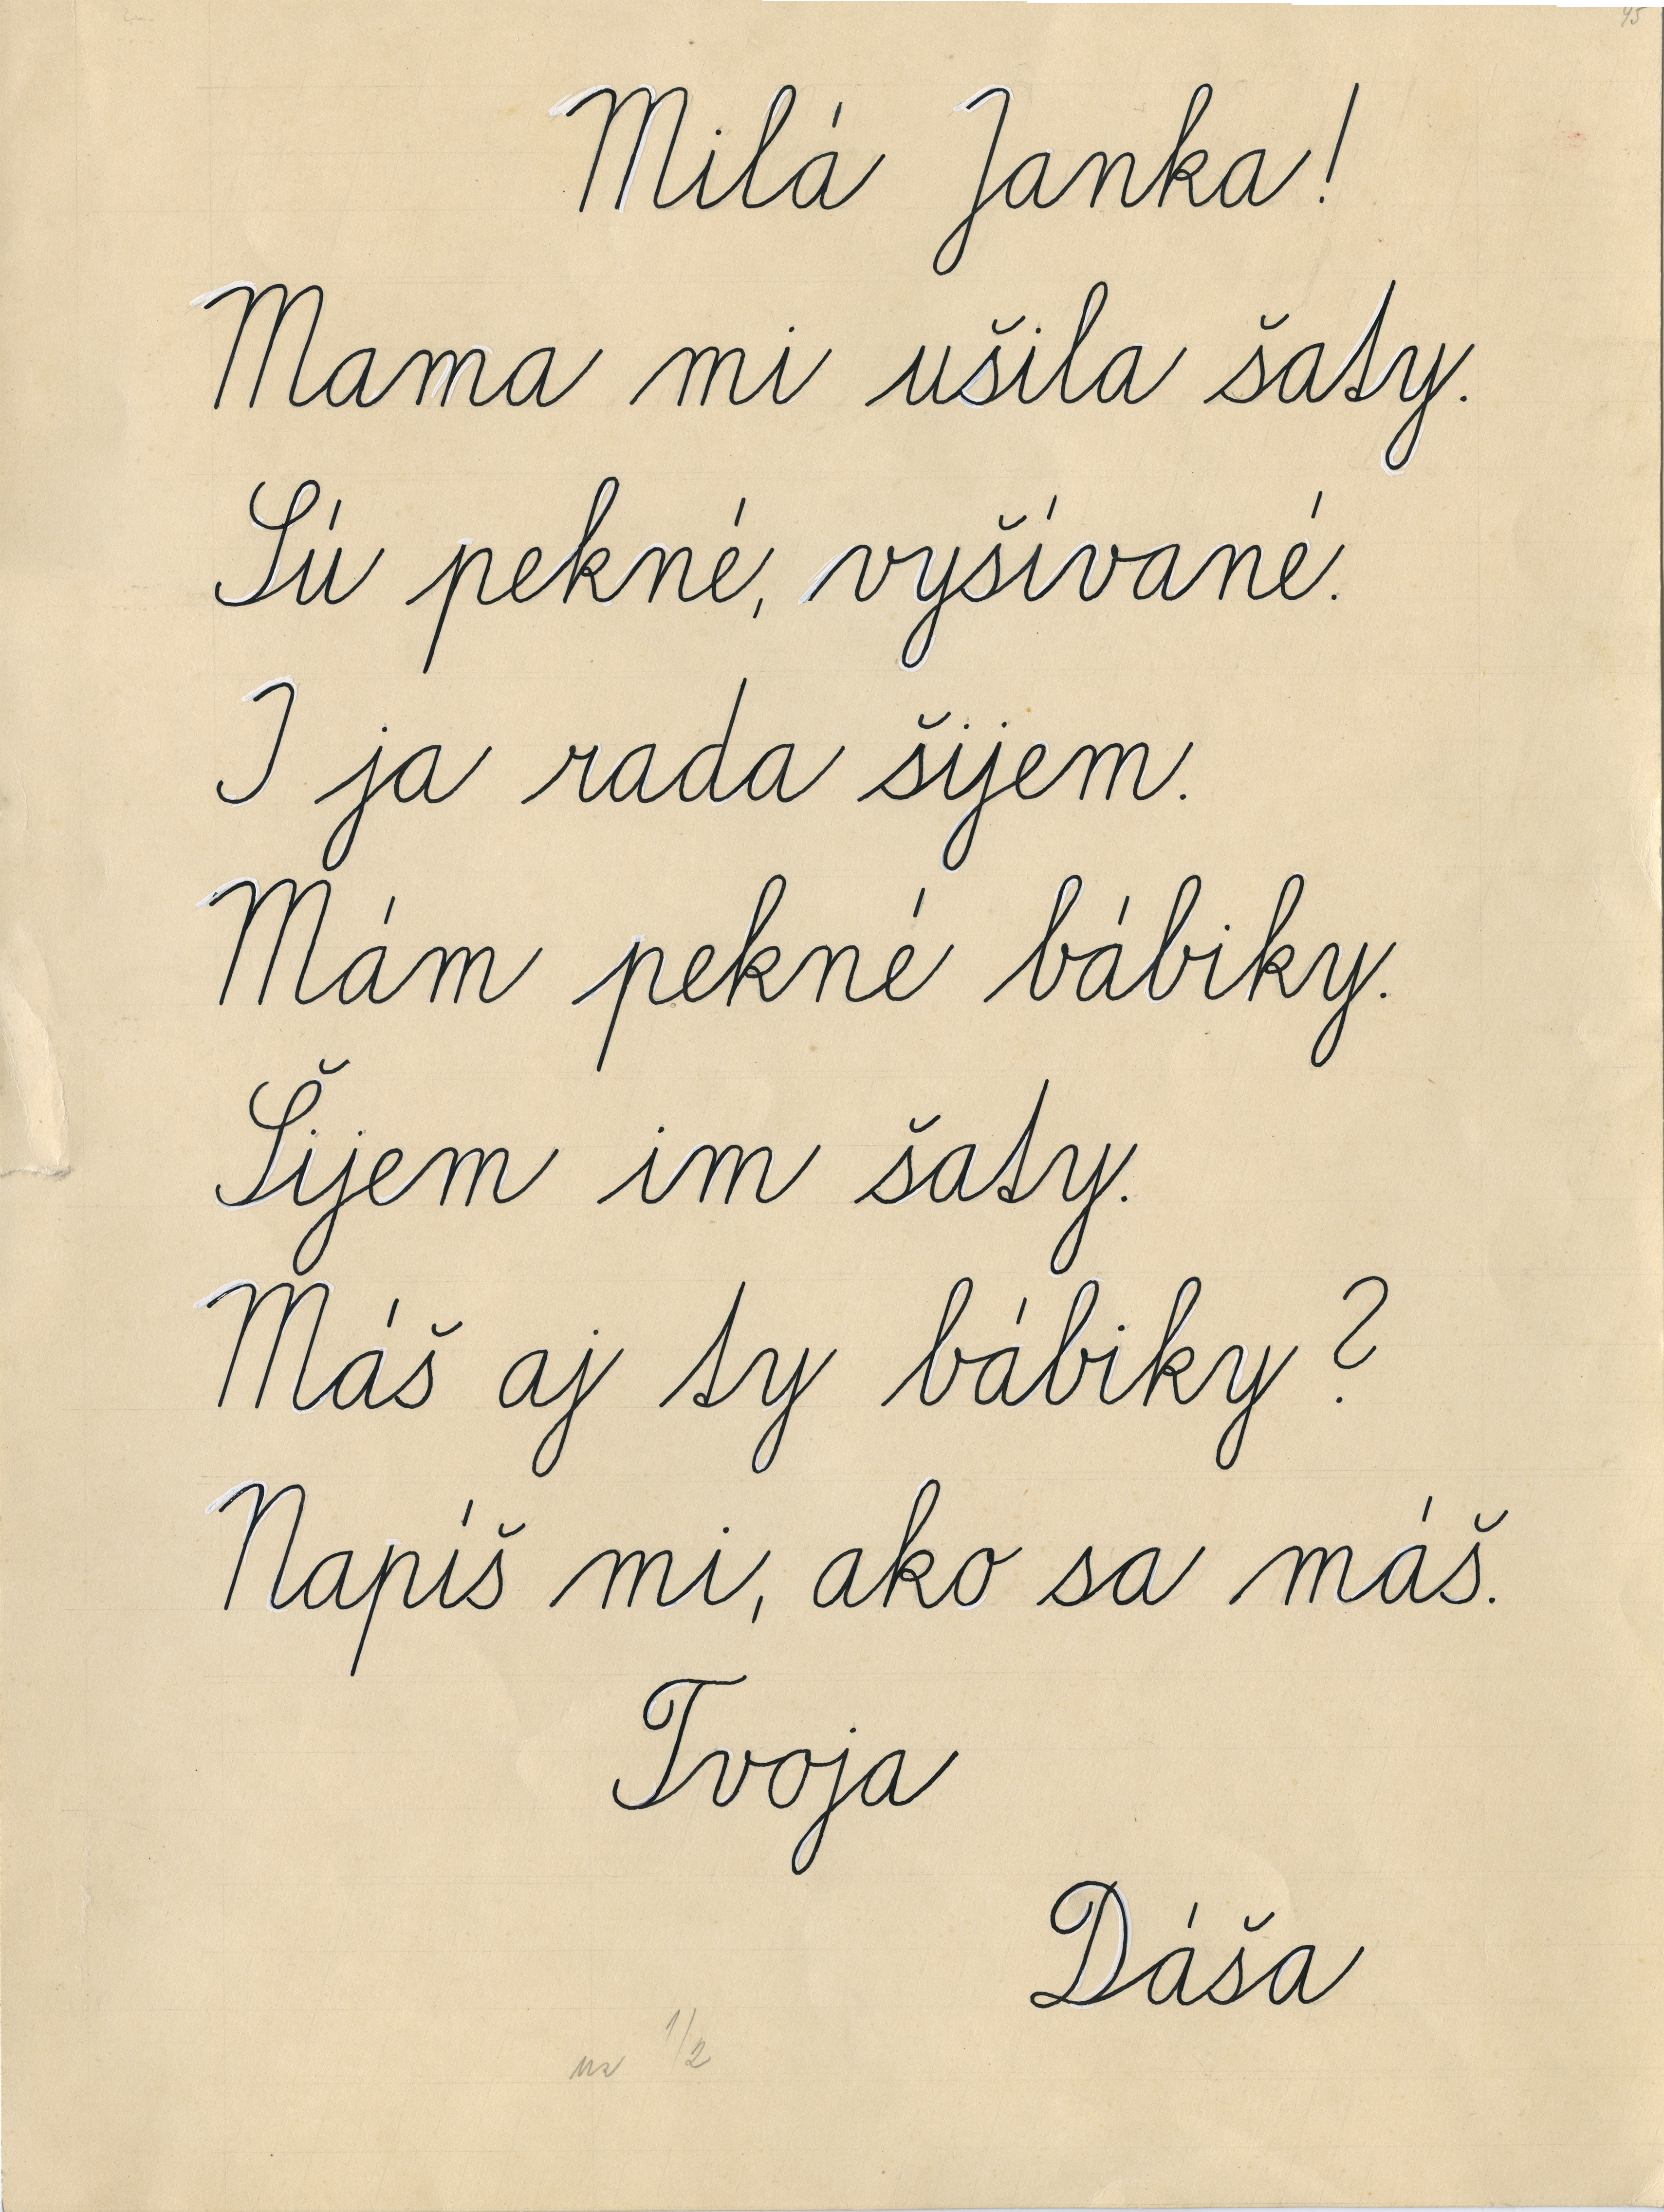 Milá Janka!
Mama mi ušila šaty.
Sú pekné, vyšívané.
I ja rada šijem.
Mám pekné bábiky.
Šijem im šaty.
Máš aj ty bábiky?
Napíš mi, ako sa máš.
Tvoja
Dáša
1/2